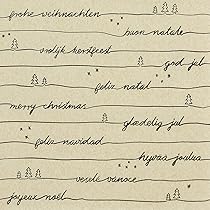 frohe weihnachten
buon natale
vrolijk kerstfeest
god jul
feliz natal
merry christmas
glædelig jul
feliz navidad
hyvää joulua
veselé vánoce
joyeux noël